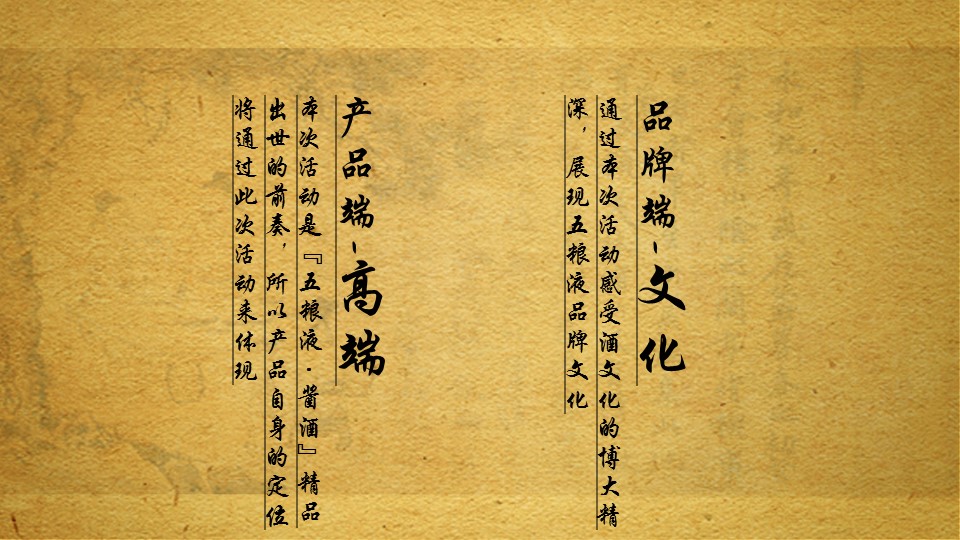 品牌端-文化
通过本次活动感受酒文化的博大精
深，展现五粮液品牌文化
产品端-高端
本次活动是『五粮液·酱酒』精品
出世的前奏，所以产品自身的定位
将通过此次活动来体现